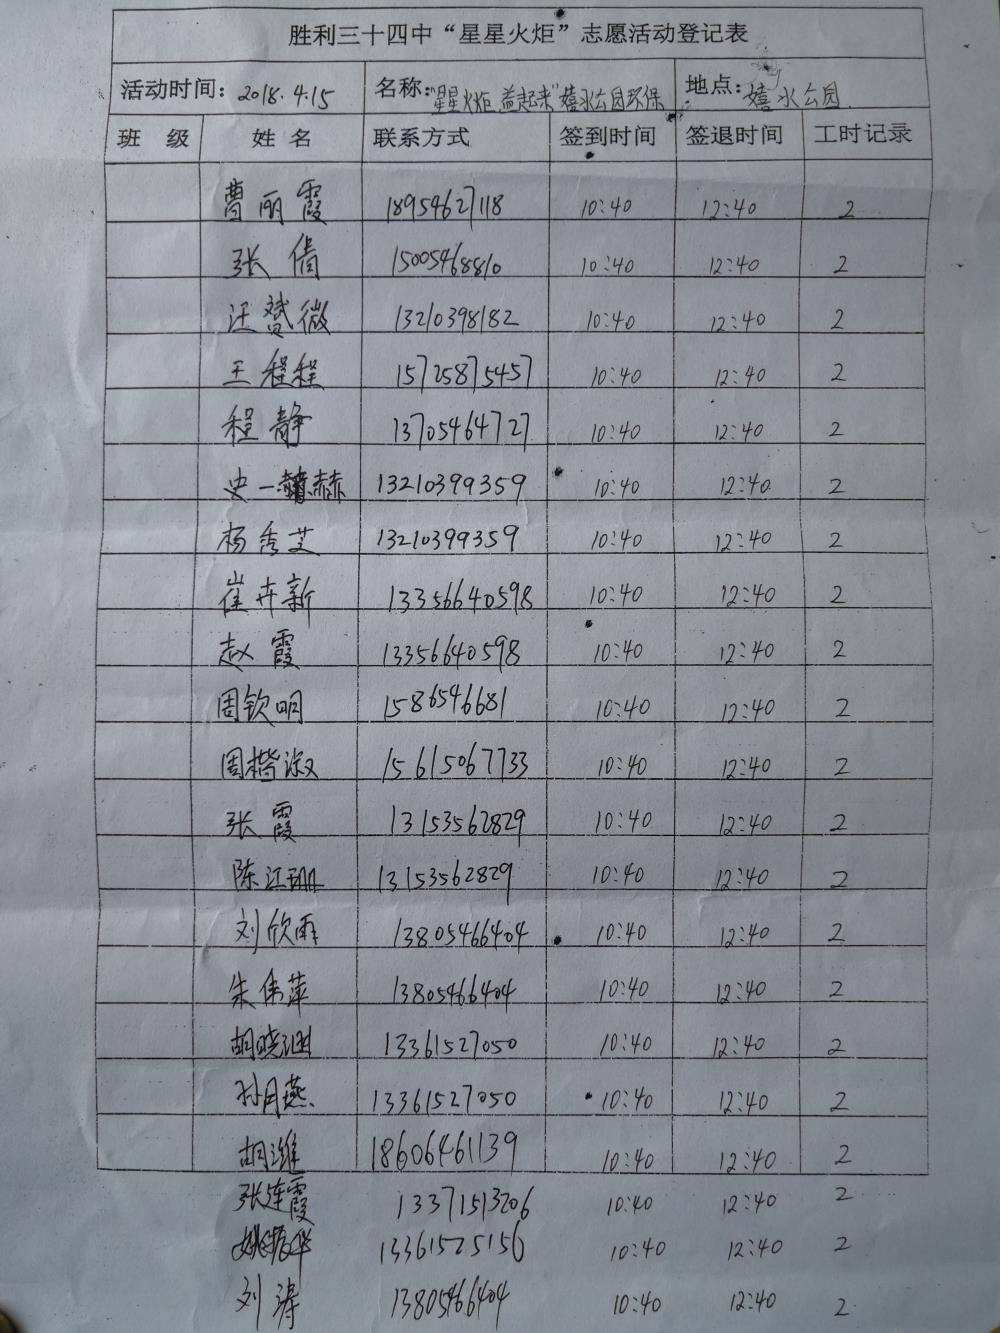 胜利三十四中“星星火炬”志愿活动登记表
活动时间：2018.4.15 名称：“星星火炬 益起来”嬉水公园环保 地点：嬉水公园
班 级 姓 名 联系方式 签到时间 签退时间 工时记录
曹丽霞 18954627118 10:40 12:40 2
张倩 15005468810 10:40 12:40 2
汪赟微 13210398182 10:40 12:40 2
王程程 15725875457 10:40 12:40 2
程静 13705464727 10:40 12:40 2
史一赫 13210399359 10:40 12:40 2
杨秀芝 13210399359 10:40 12:40 2
崔卉新 13356640598 10:40 12:40 2
赵霞 13356640598 10:40 12:40 2
周钦明 1586546681 10:40 12:40 2
周楷淑 15615067733 10:40 12:40 2
张霞 13153562829 10:40 12:40 2
陈江珊 13153562829 10:40 12:40 2
刘欣雨 13805466404 10:40 12:40 2
朱伟萍 13805466404 10:40 12:40 2
胡晓涵 13361527050 10:40 12:40 2
孙月燕 13361527050 10:40 12:40 2
胡潍 18606461139 10:40 12:40 2
张连霞 13371513206 10:40 12:40 2
姚振华 13361525156 10:40 12:40 2
刘涛 13805466404 10:40 12:40 2